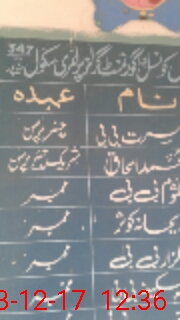 کونسل گورنمنٹ گرلز پرائمری سکول 347
نام عہدہ
مسرت بی بی چیئرپرسن
محمد اسحاق شریک چیئرپرسن
کلثوم بی بی ممبر
ریحانہ کوثر ممبر
گلزار بی بی ممبر
بی بی
3-12-17 12:36